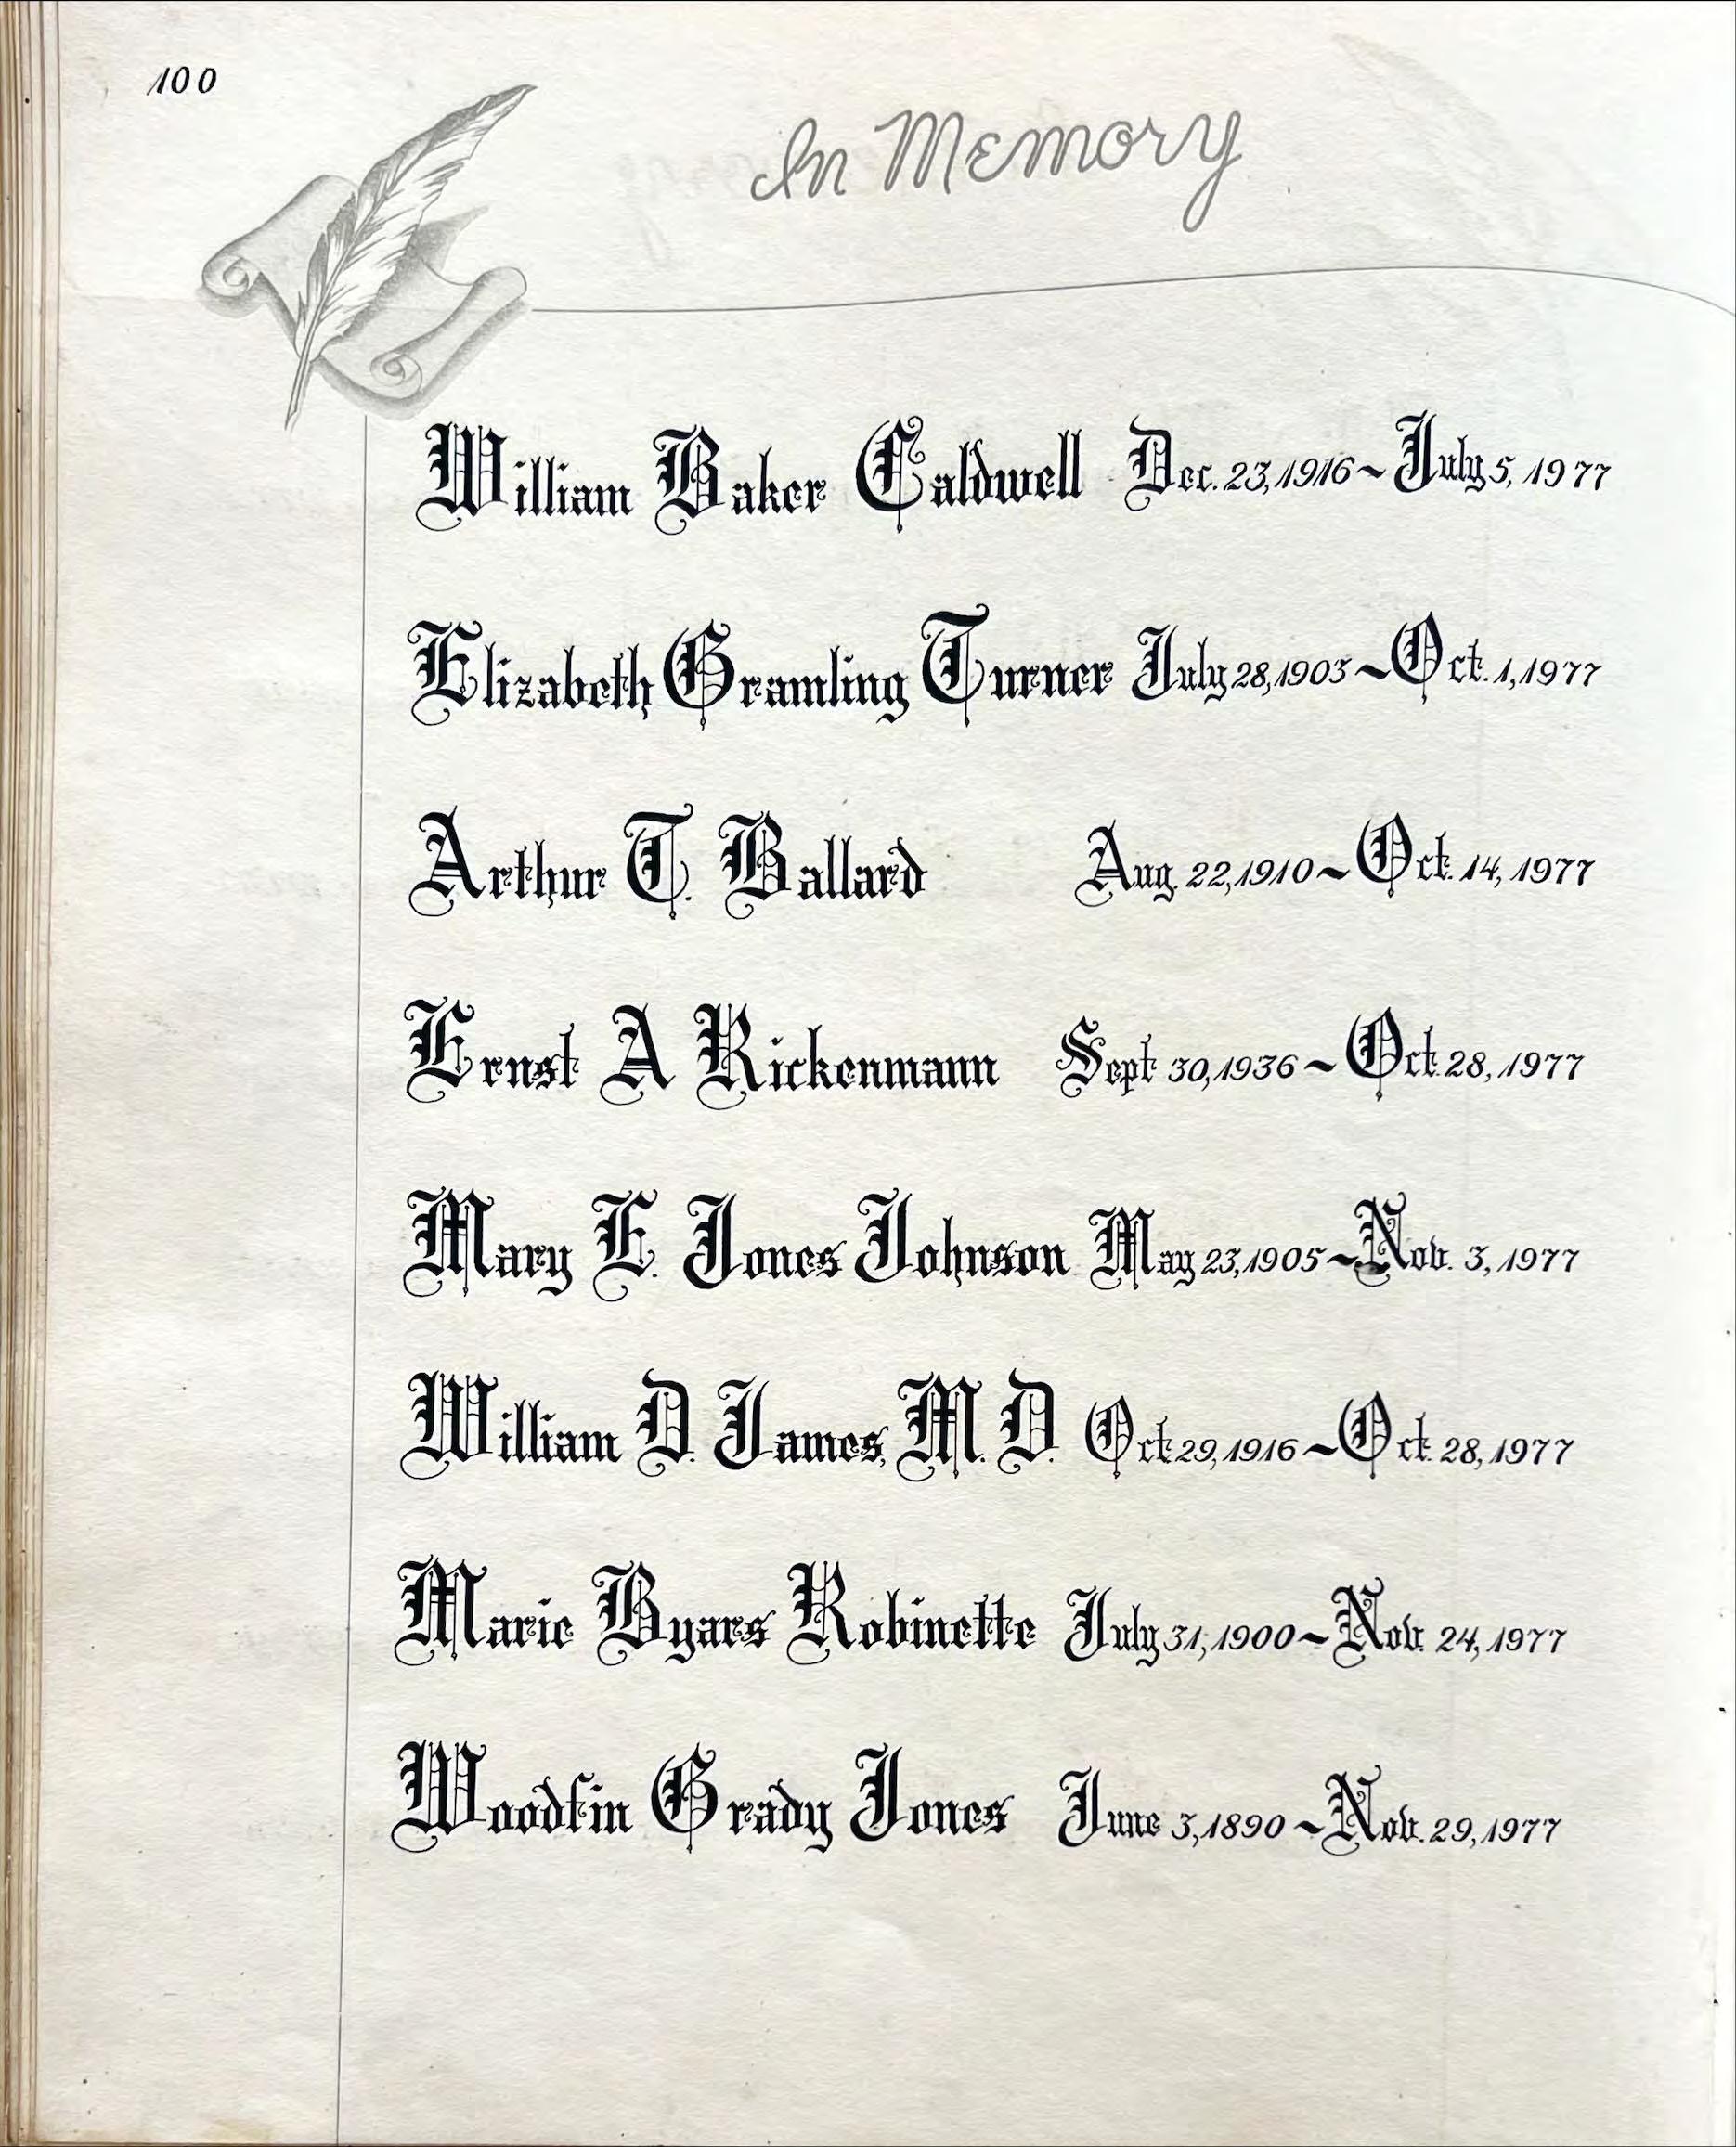 100
In Memory
William Baker Caldwell Dec. 23, 1916 ~ July 5, 1977
Elizabeth Gramling Turner July 28, 1903 ~ Oct. 1, 1977
Arthur T. Ballard Aug. 22, 1910 ~ Oct. 14, 1977
Ernst A Rickenmann Sept. 30, 1936 ~ Oct. 28, 1977
Mary E. Jones Johnson May 23, 1905 ~ Nov. 3, 1977
William D. James, M. D. Oct. 29, 1916 ~ Oct. 28, 1977
Marie Byars Robinette July 31, 1900 ~ Nov. 24, 1977
Woodfin Grady Jones June 3, 1890 ~ Nov. 29, 1977